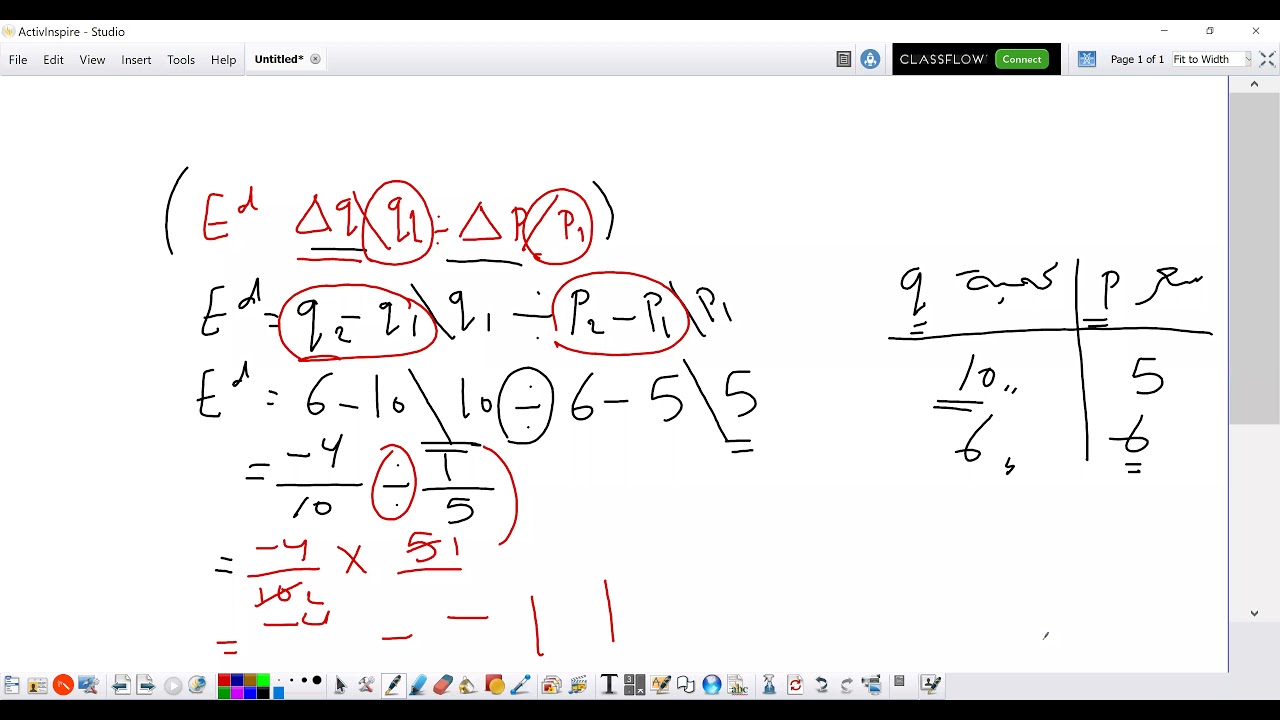 ActivInspire - Studio
File Edit View Insert Tools Help Untitled*
CLASSFLOW Connect Page 1 of 1 Fit to Width
( E^d Δq \ q1 ÷ Δp / p1 )
E^d = q2 - q1 \ q1 ÷ p2 - p1 \ p1
E^d = 6 - 10 \ 10 ÷ 6 - 5 \ 5
= -4/10 ÷ 1/5
= -4/10 2 × 5 1
= -4 - - | |
q كمية | p سعر
10 | 5
6 | 6